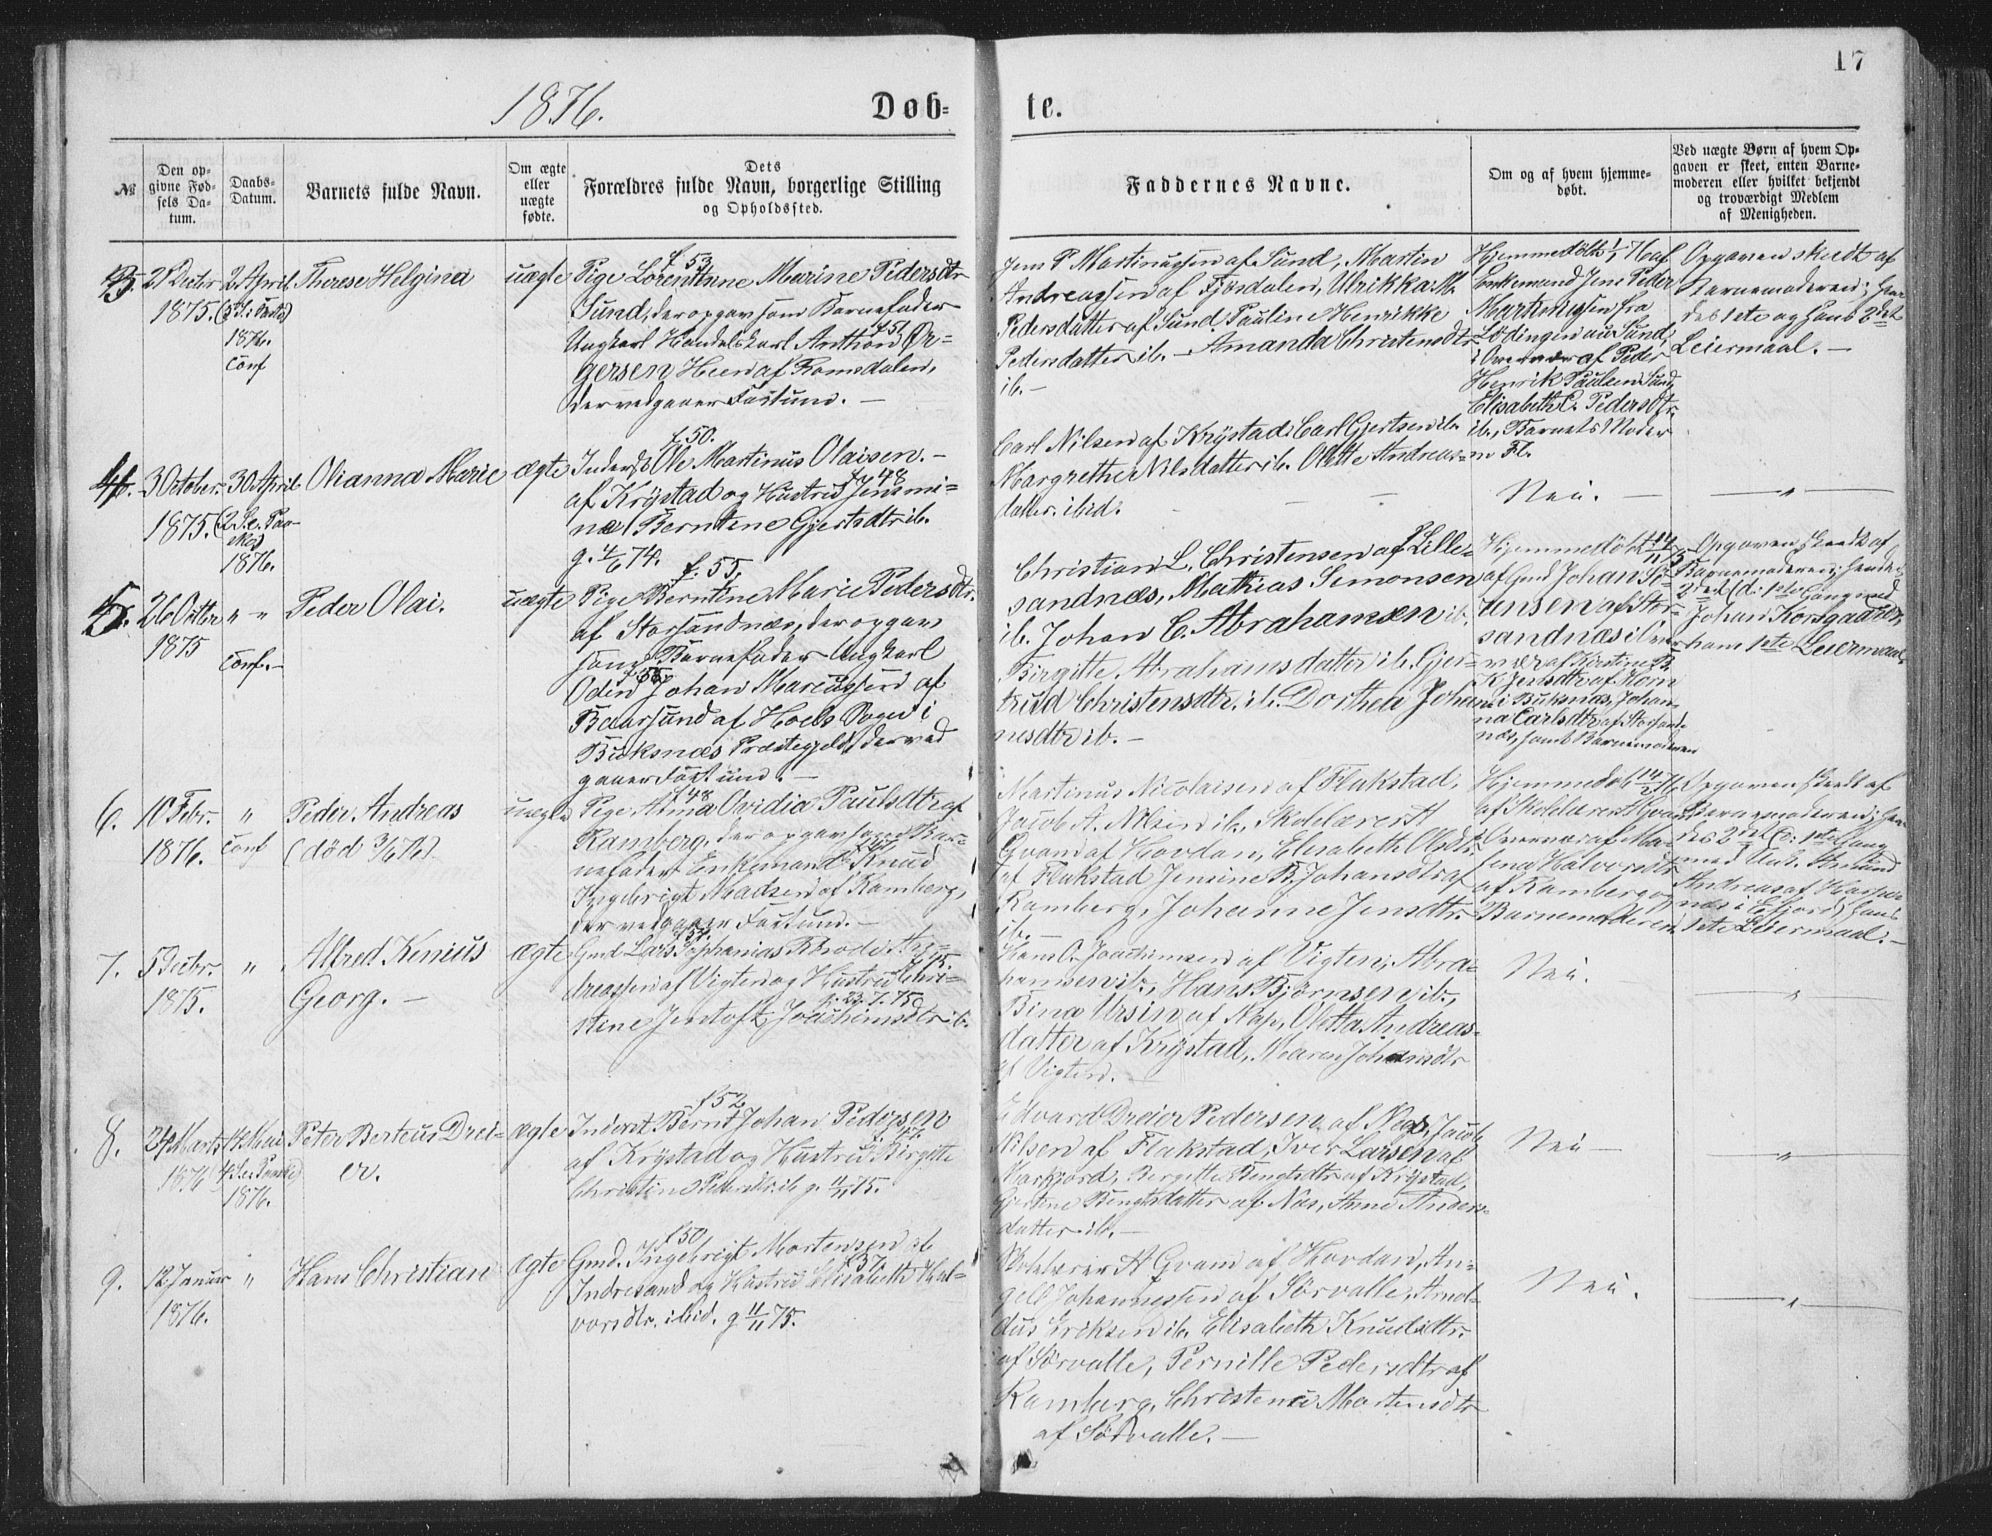 17
1876.
Døb-
te.
№
Den op-
givne Fød-
sels Da-
tum.
Daabs-
Datum.
Barnets fulde Navn.
Om ægte
eller
uægte
fødte.
Dets
Forældres fulde Navn, borgerlige Stilling
og Opholdssted.
Faddernes Navne.
Om og af hvem hjemme-
døbt.
Ved uægte Børn af hvem Op-
gaven er skeet, enten Barne-
moderen eller hvilket bekjendt
og troværdigt Medlem
af Menigheden.
21 Decbr
1875.
2 April
1876.
Conf
Therese Helgina
uægte
f. 53.
Pige Lorentine Marine Pedersdtr
Sund, der opgav som Barnefader
Ungkarl Handelskarl Anthon
gersen Heen af Romsdalen,
der vedgaaer Farskund. —
Jens P Martinussen af Sund, Martin
Andreassen af Fjøsdalen, Ulrikka M.
Pedersdatter af Sund, Pauline Henrikke
Pedersdatter ib. — Amanda Christensdtr
ib. —
Hjemmedøbt
Enkemand Jens Peder
Martinussen fra
Lødingen nu Sund,
af Peder
Henrik Paulsen Sund,
Elisabeth C. Pedersdtr
ib., Barnets Moder
m Fl.
Opgaven skeedt af
Barnemoderen;
des 1ste og hans 2det
Leiermaal. —
4.
3 October
1875.
30 April
1876.
Olianna Marie
ægte
f. 50.
Inderst Ole Martinus Olaisen. —
af Krystad og Hustrud Jensmi-
næ Berntine Gjertsdtr ib.
g. 4/6 74.
Carl Nilsen af Krystad, Carl Gjertsen ib.
Margrethe Nilsdatter ib. Olette Andreas-
datter. ibid.
Nei. —
— " —
5.
26 Octbr
1875
" "
Conf. —
Peder Olai.
uægte
f. 55.
Pige Berntine Marie Pedersdtr.
af Storsandnæs, der opgav
som Barnefader Ungkarl
Odin Johan Marcussen af
Baarsund af Hoels Sogn i
Buksnæs Præstegjeld, der ved
gaaer Farskund. —
Christian L. Christensen af Lille-
sandnæs, Mathias Simonsen
ib. Johan C. Abrahamsen ib.
Birgitte Abrahamsdatter ib. Gjer-
trud Christensdtr. ib. Dorthea Johan-
nesdtr ib. —
Hjemmedøbt
af Gmd Johan
ansen af Stor-
sandnæs i Over-
vær af Kirstine B.
K. Jensdtr af Horn
i Buksnæs, Johan-
na Carlsdtr af Storsand-
næs, samt Barnemoderen
Opgaven skeedt af
Barnemoderen; hendes
2det (d: 1ste Gang med
Johan Korsgaard
hans 1ste Leiermaal.
6.
10 Febr.
1876.
"
Conf
Peder Andreas
(død 3/6 76)
uægte
f 48
Pige Anna Ovidia Paulsdtr af
Ramberg, der opgav som Bar-
nefader Enkemand Knud
Ingebrigt Madsen af Ramberg,
der vedgaaer Farskund. —
Martinus Nicolaisen af Flakstad,
Jacob A. Nilsen ib., Skolelærer A
Qvam af Hovdan, Elisabeth Olsdtr
af Flakstad, Jensine B. Johansdtr af
Ramberg, Johanne Jensdtr.
ib. —
Hjemmedøbt 14/2 76
af Skolelærer A Qvam
Overvær af Ma-
Halvorsdtr
af Ramberg og
Barnemoderen
Opgaven skeedt af
Barnemoderen; hen-
des 2det (d: 1ste Gang
med
Andreas af
næs i Efjord) hans
1ste Leiermaal. —
7.
5 Decbr.
1875.
"
Alfred Kenius
Georg. —
ægte
Gmd Lars Sophanias Rhode An-
dreassen af Vigten og Hustrud Chri-
stine Jentoft Joachimsdtr ib.
g. 23.7.75
Hans C. Joachimsen af Vigten, Abra-
hamsen ib., Hans Bjørnsen ib.,
Bina Ursin af Nap, Oletta Andreas-
datter af Krystad, Maren Johansdtr
af Vigten. —
Nei.
— " —
8.
24 Marts
1876
14 Mai
4 S. e. Paaske
1876.
Peter Berteus Drei-
er.
ægte
f 52
Inderst Bernt Johan Pedersen
af Krystad og Hustrud Birgitte
Christine Pedersdtr. ib g. 11/11 75.
Edvard Dreier Pedersen af Næs, Jacob
Nilsen af Flakstad, Iver Larsen af
Marfjord, Bergitte Bengtsdtr af Krystad,
Gjertine Bengtsdatter af Næs, Anne Anders-
datter ib. —
Nei —
"
9.
12 Januar
1876.
"
Hans Christian
ægte
f 50
Gmd. Ingebrigt Mortensen af
Indresand og Hustrud Elisabeth Hal-
vorsdtr. ibid. g 11/11 75.
Skolelærer A Qvam af Hovdan, An-
gell Johannessen af Sørvalle, Arnol-
dus Eriksen ib. Elisabeth Knudsdtr.
af Sørvalle, Pernille Pedersdtr af
Ramberg, Christence Mortensdtr
af Sørvalle. —
Nei.
— " —